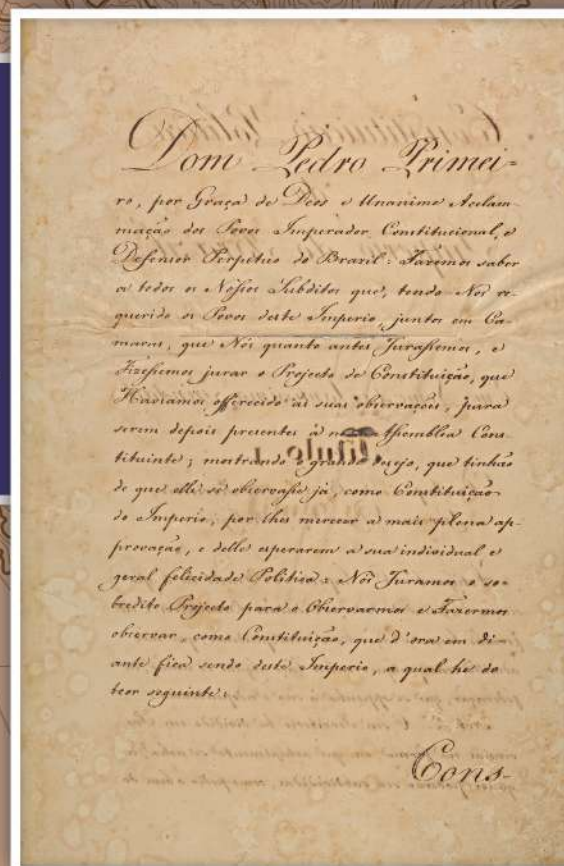 Dom Pedro Primei-
ro, por Graça de Deos e Unanime Acclam-
mação dos Povos Imperador Constitucional, e
Defensor Perpetuo do Brazil: Fazemos saber
a todos os Nossos Subditos que, tendo Nos re-
querido os Povos deste Imperio, juntos em Ca-
maras, que Nós quanto antes Jurassemos, e
Fizessemos jurar o Projecto de Constituição, que
Haviamos offerecido ás suas observações, para
serem depois presentes á nova Assemblea Cons-
tituinte; mostrando o grande desejo, que tinhão
de que elle se observasse já, como Constituição
do Imperio, por lhes merecer a mais plena ap-
provação, e delle esperarem a sua individual e
geral felicidade Politica: Nós Juramos o so-
bredito Projecto para o Observarmos e Fazermos
observar, como Constituição, que d'ora em di-
ante fica sendo deste Imperio, a qual he do
teor seguinte:
Cons-